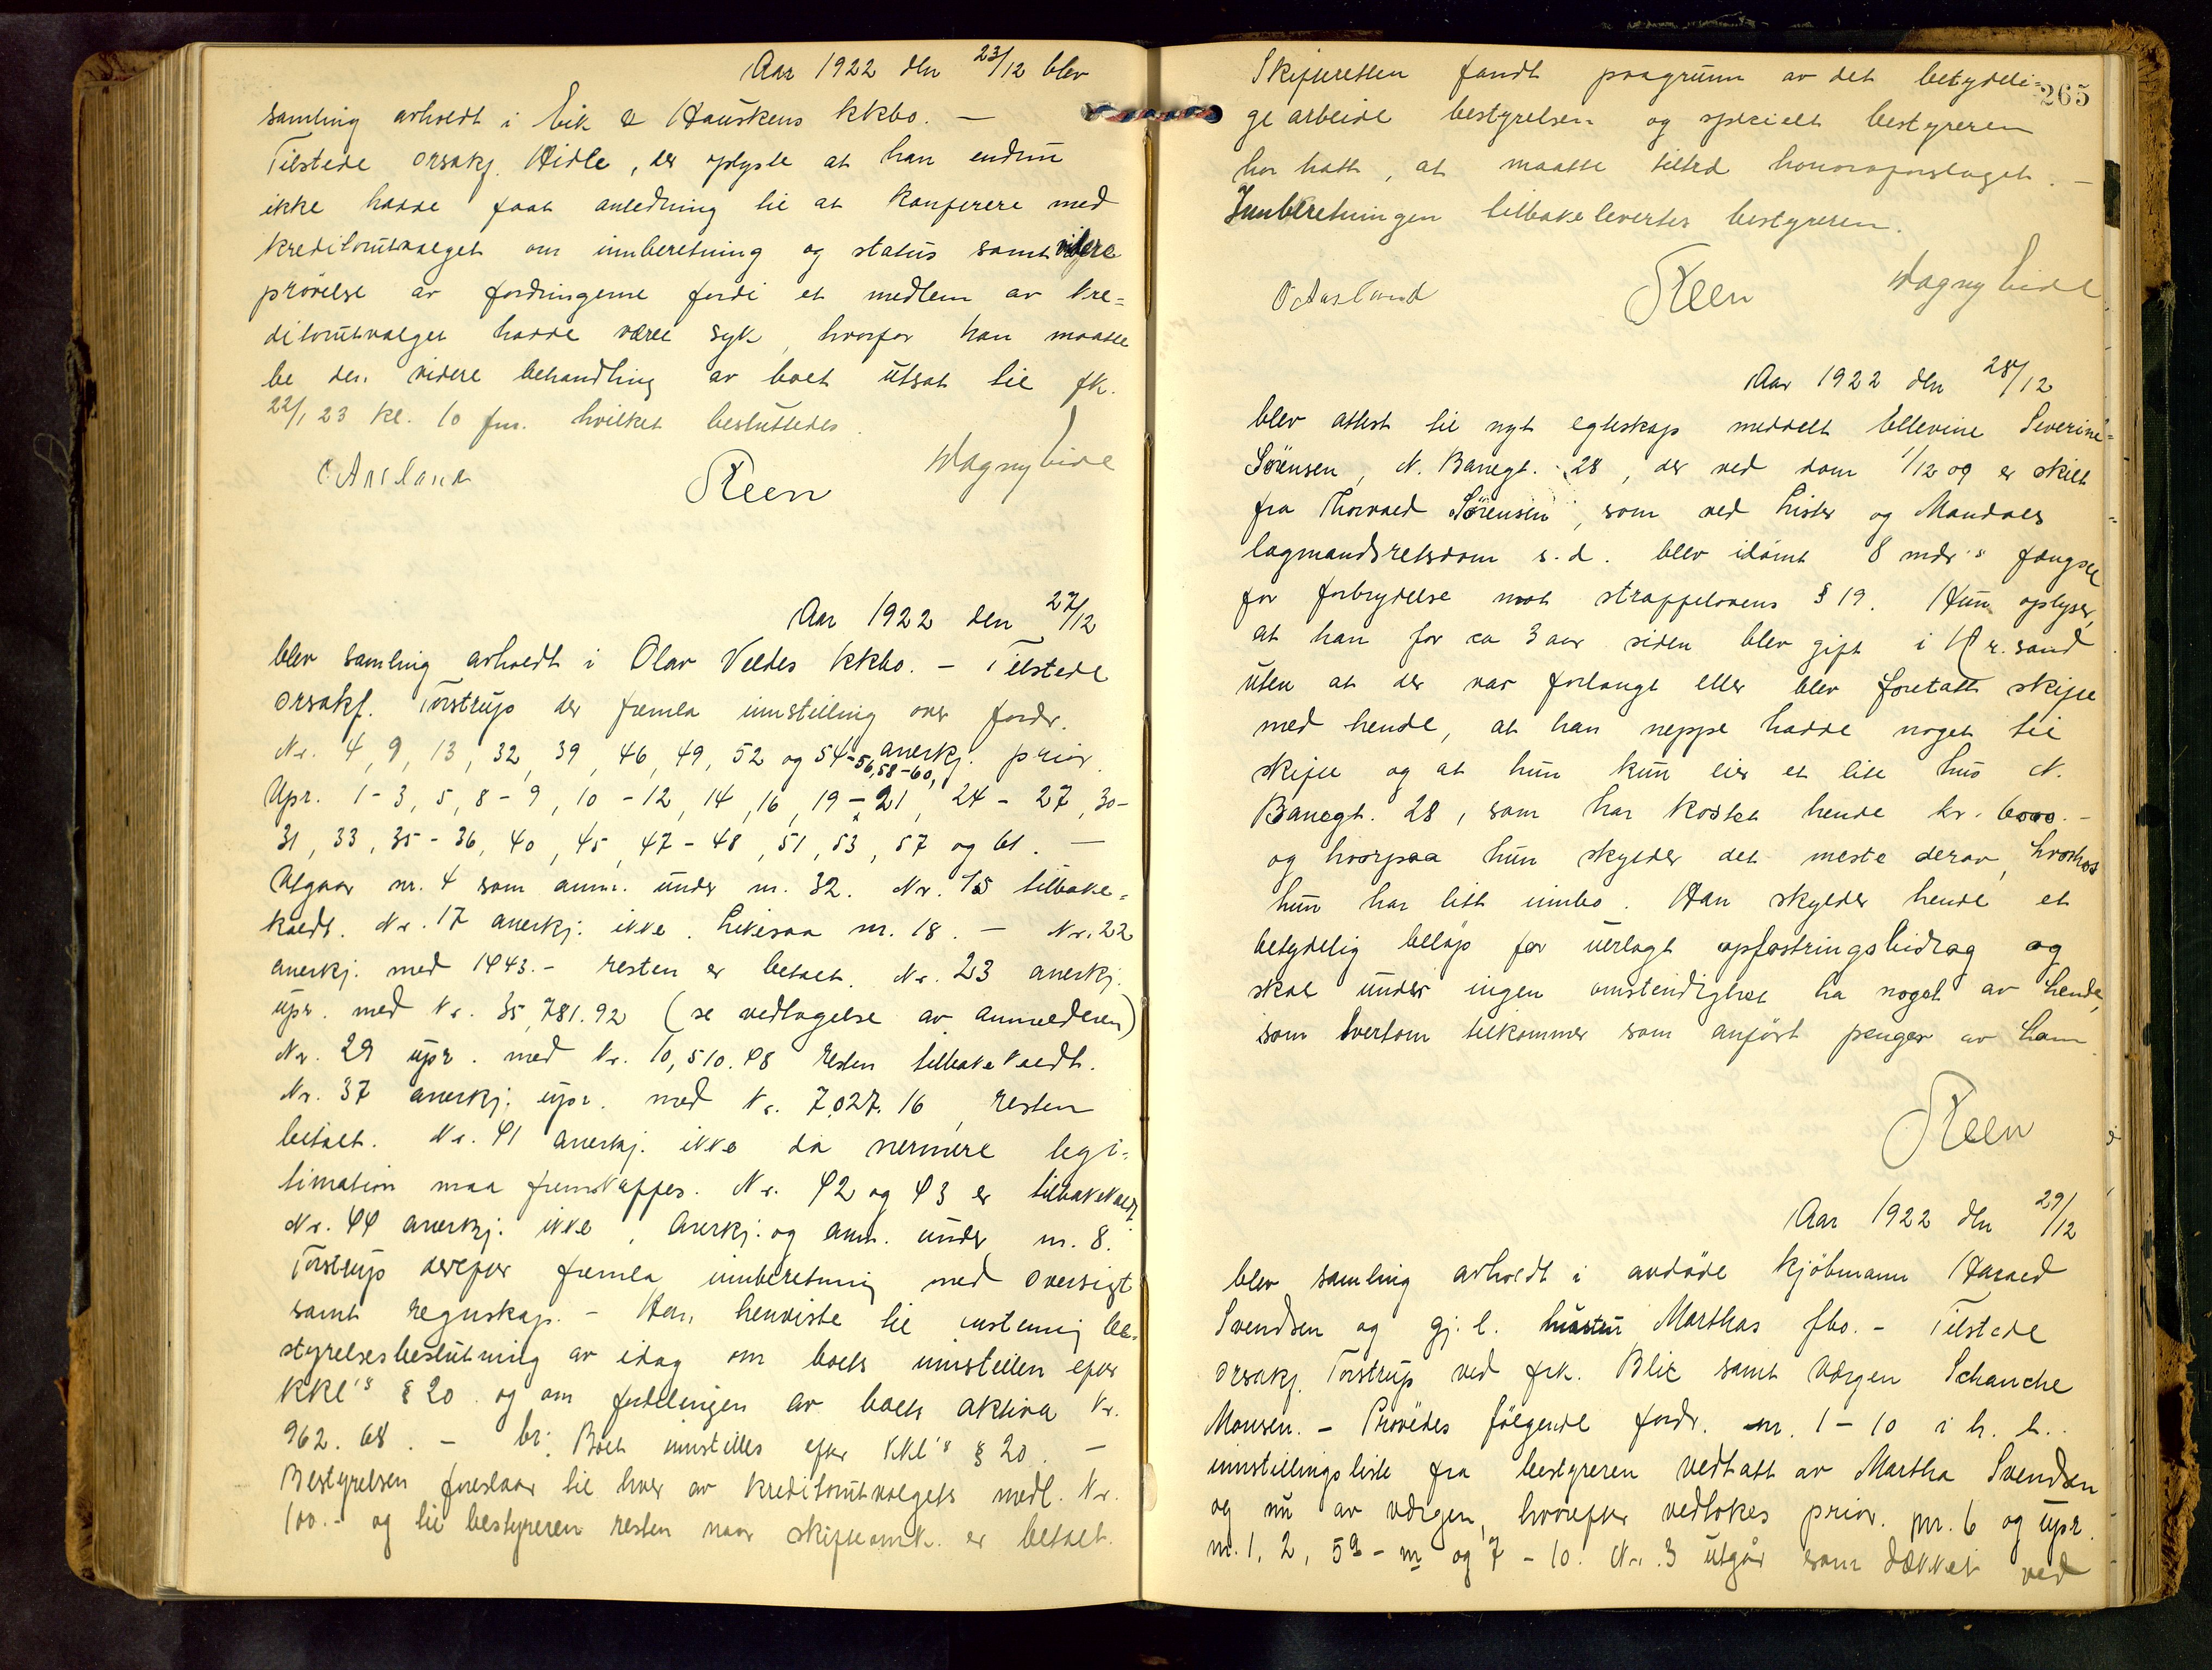 Aar 1922 den 23/12 blev
samling avholdt i Eik & Hauskens kkbo. —
Tilstede orsakf. Hidle, der oplyste at han endnu
ikke hadde faat anledning til at konferere med
kreditorutvalget om innberetning og status samt videre
prøvelse av fordringerne fordi et medlem av kre=
ditorutvalget hadde været syk, hvorfor han maatte
be den videre behandling av boet utsat til fk.
22/1 23 kl. 10 fm. hvilket besluttedes.
O Aasland Steen Magny Eide
Aar 1922 den 27/12
blev samling avholdt i Olav Veldes kkbo. – Tilstede
orsakf. Torstrup der fremla innstilling over fordr.
Nr. 4, 9, 13, 32, 39, 46, 49, 52 og 54-56, 58-60, anerkj. prior.
Upr. 1-3, 5, 8-9, 10-12, 14, 16, 19-21, 24-27, 30-
31, 33, 35-36, 40, 45, 47-48, 51, 53, 57 og 61. —
Utgaar nr. 4 som anm. under nr. 32. Nr. 15 tilbake=
kaldt. Nr. 17 anerkj. ikke. Likesaa nr. 18. — Nr. 22
anerkj. med 1443.- resten er betalt. Nr. 23 anerkj.
upr. med kr. 35,781.92 (se vedtagelse av anmelderen)
Nr. 29 upr. med kr. 10,510.48 resten tilbakekaldt.
Nr. 37 anerkj. upr. med kr. 7.027.16, resten
betalt. Nr. 41 anerkj. ikke da nermere legi=
timation maa fremskaffes. Nr. 42 og 43 er tilbakekaldt.
Nr. 44 anerkj. ikke, anerkj. og anm. under nr. 8.
Torstrup derefter fremla innberetning med oversigt
samt regnskap. – Han henviste til enstemmig be=
styrelsesbeslutning av idag om boets innstillen efter
KKl's § 20 og om fordelingen av boets aktiva kr.
962.68. – br: Boet innstilles efter KKl's § 20. —
Bestyrelsen foreslaar til hver av kreditorutvalgets medl. kr.
100.- og til bestyreren resten naar skifteomk. er betalt.
265
Skifteretten fandt paagrunn av det betydeli=
ge arbeide bestyrelsen og specielt bestyreren
har hatt, at maatte tiltræ honorarforslaget. —
Innberetningen tilbakelevertes bestyreren.
O Aasland Steen Magny Eide
Aar 1922 den 28/12
blev attest til nyt egteskap meddelt Ellevine Severine
Sørensen, N. Banegt. 28, der ved dom 1/12 09 er skilt
fra Thorvald Sørensen, som ved Lister og Mandals
lagmandsretsdom s.d. blev idømt 8 mdr's fængsel
for forbrydelse mot straffelovens § 19. Hun oplyser,
at han for ca 3 aar siden blev gift i Kr.sand
uten at der var forlangt eller blev foretatt skifte
med hende, at han neppe hadde noget til
skifte og at hun kun eier et lite hus N.
Banegt. 28, som har kostet hende kr. 6000.-
og hvorpaa hun skylder det meste derav, hvorhos
hun har litt innbo. Han skylder hende et
betydelig beløp for uerlagt opfostringsbidrag og
skal under ingen omstendighet ha noget av hende,
som tvertom tilkommer som anført penger av ham.
Steen
Aar 1922 den 29/12
blev samling avholdt i avdøde kjøbmann Harald
Svendsen og gj. l. hustru Marthas fbo. – Tilstede
orsakf. Torstrup ved frk. Blix samt vergen Schanche
Monsen. – Prøvedes følgende fordr. nr. 1-10 i h. t.
innstillingsliste fra bestyreren vedtatt av Martha Svendsen
og nu av vergen, hvorefter vedtokes prior. nr. 6 og upr.
nr. 1, 2, 5a-m og 7-10. Nr. 3 utgår som dækket ved